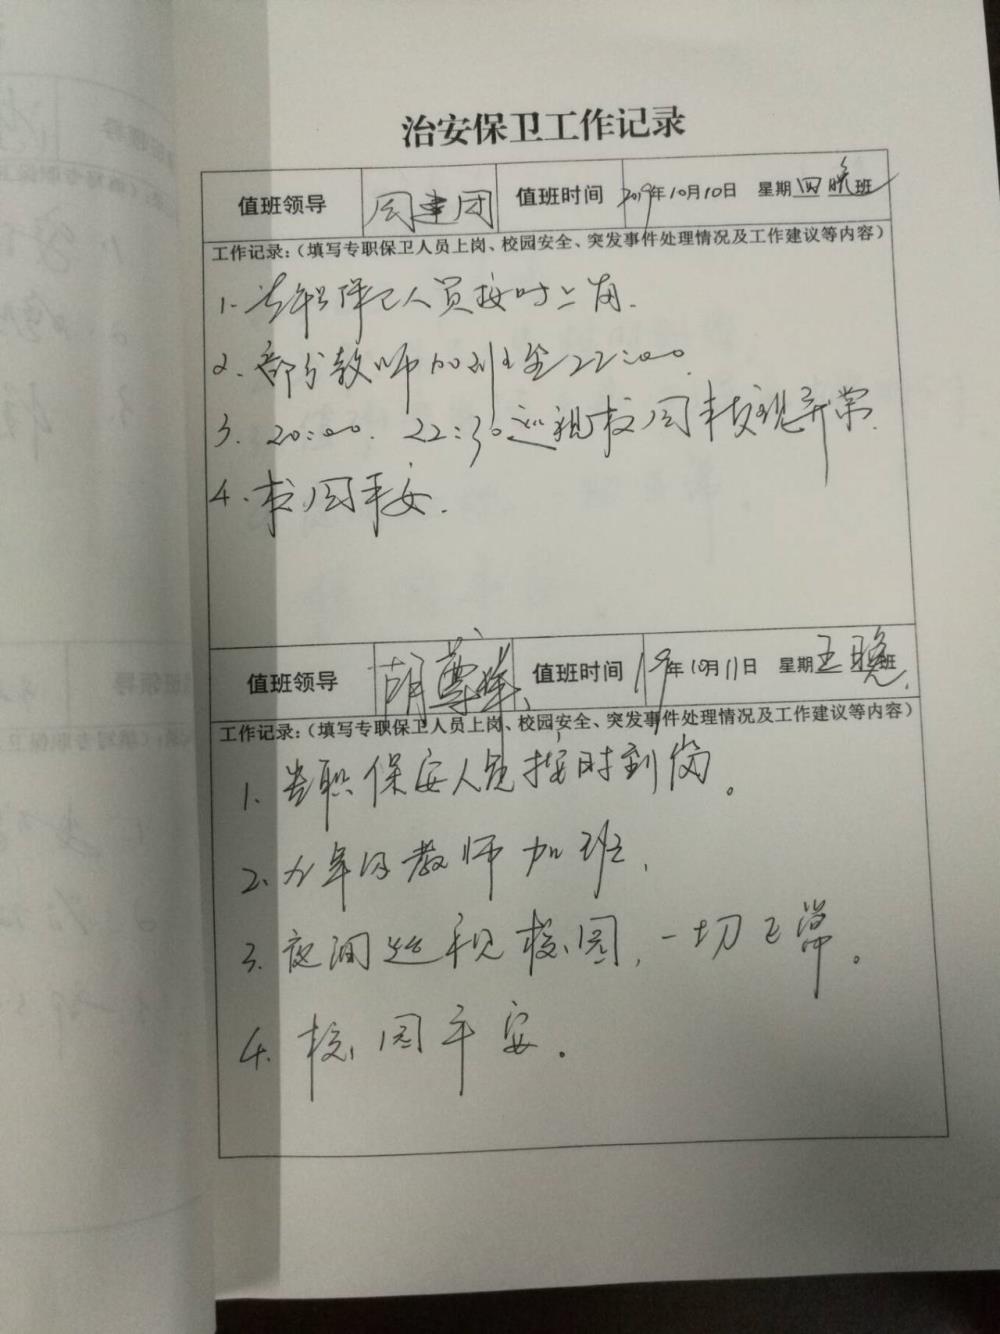 治安保卫工作记录
值班领导 周建团 值班时间 2019年10月10日 星期四晚班
工作记录：（填写专职保卫人员上岗、校园安全、突发事件处理情况及工作建议等内容）
1. 专职保卫人员按时上岗.
2. 部分教师加班至22:00.
3. 20:00. 22:30巡视校园未发现异常.
4. 校园平安.
值班领导 胡尊峰 值班时间 19年10月11日 星期五晚班
工作记录：（填写专职保卫人员上岗、校园安全、突发事件处理情况及工作建议等内容）
1. 专职保安人员按时到岗。
2. 九年级教师加班.
3. 夜间巡视校园, 一切正常。
4. 校园平安.